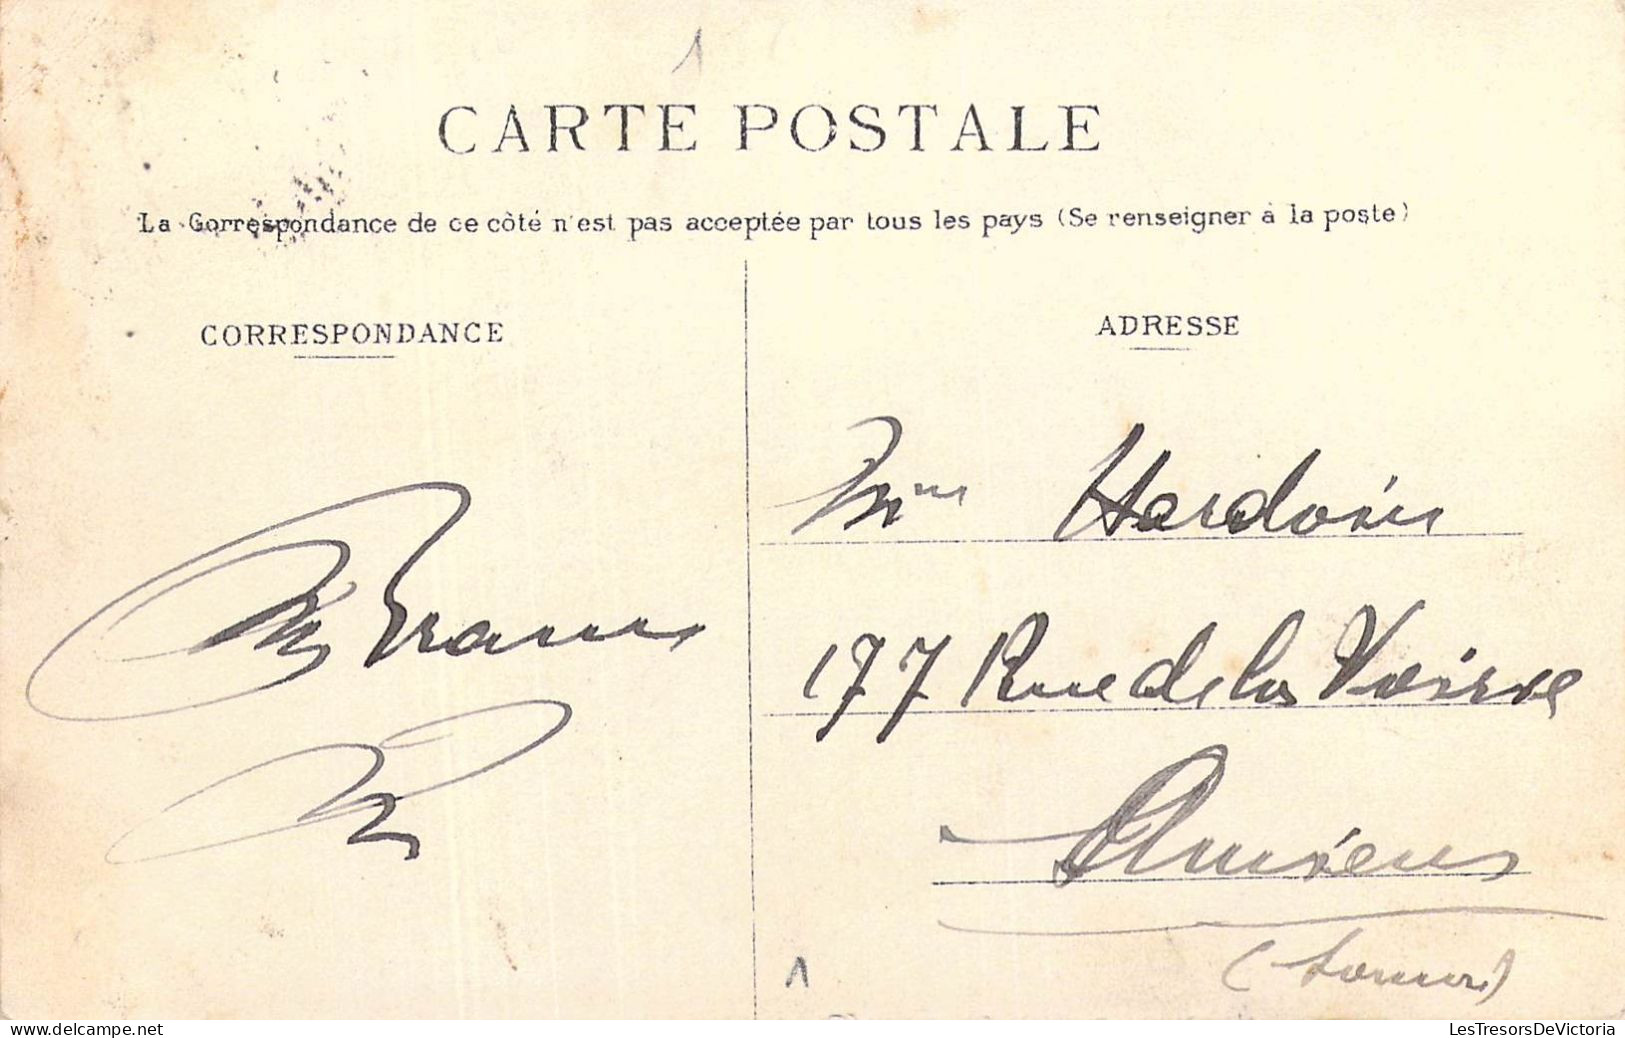 1
CARTE POSTALE
La Correspondance de ce côté n'est pas acceptée par tous les pays (Se renseigner à la poste)
CORRESPONDANCE
ADRESSE
Mme Hardouin
177 Rue de la Voirie
Amiens
(Somme)
1
LesTresorsDeVictoria